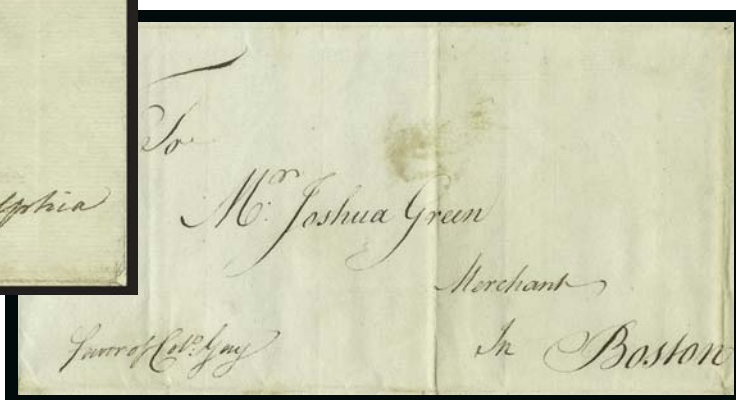 To
Mr. Joshua Green
Merchant
In Boston
Favor of Colo. Gay
lphia